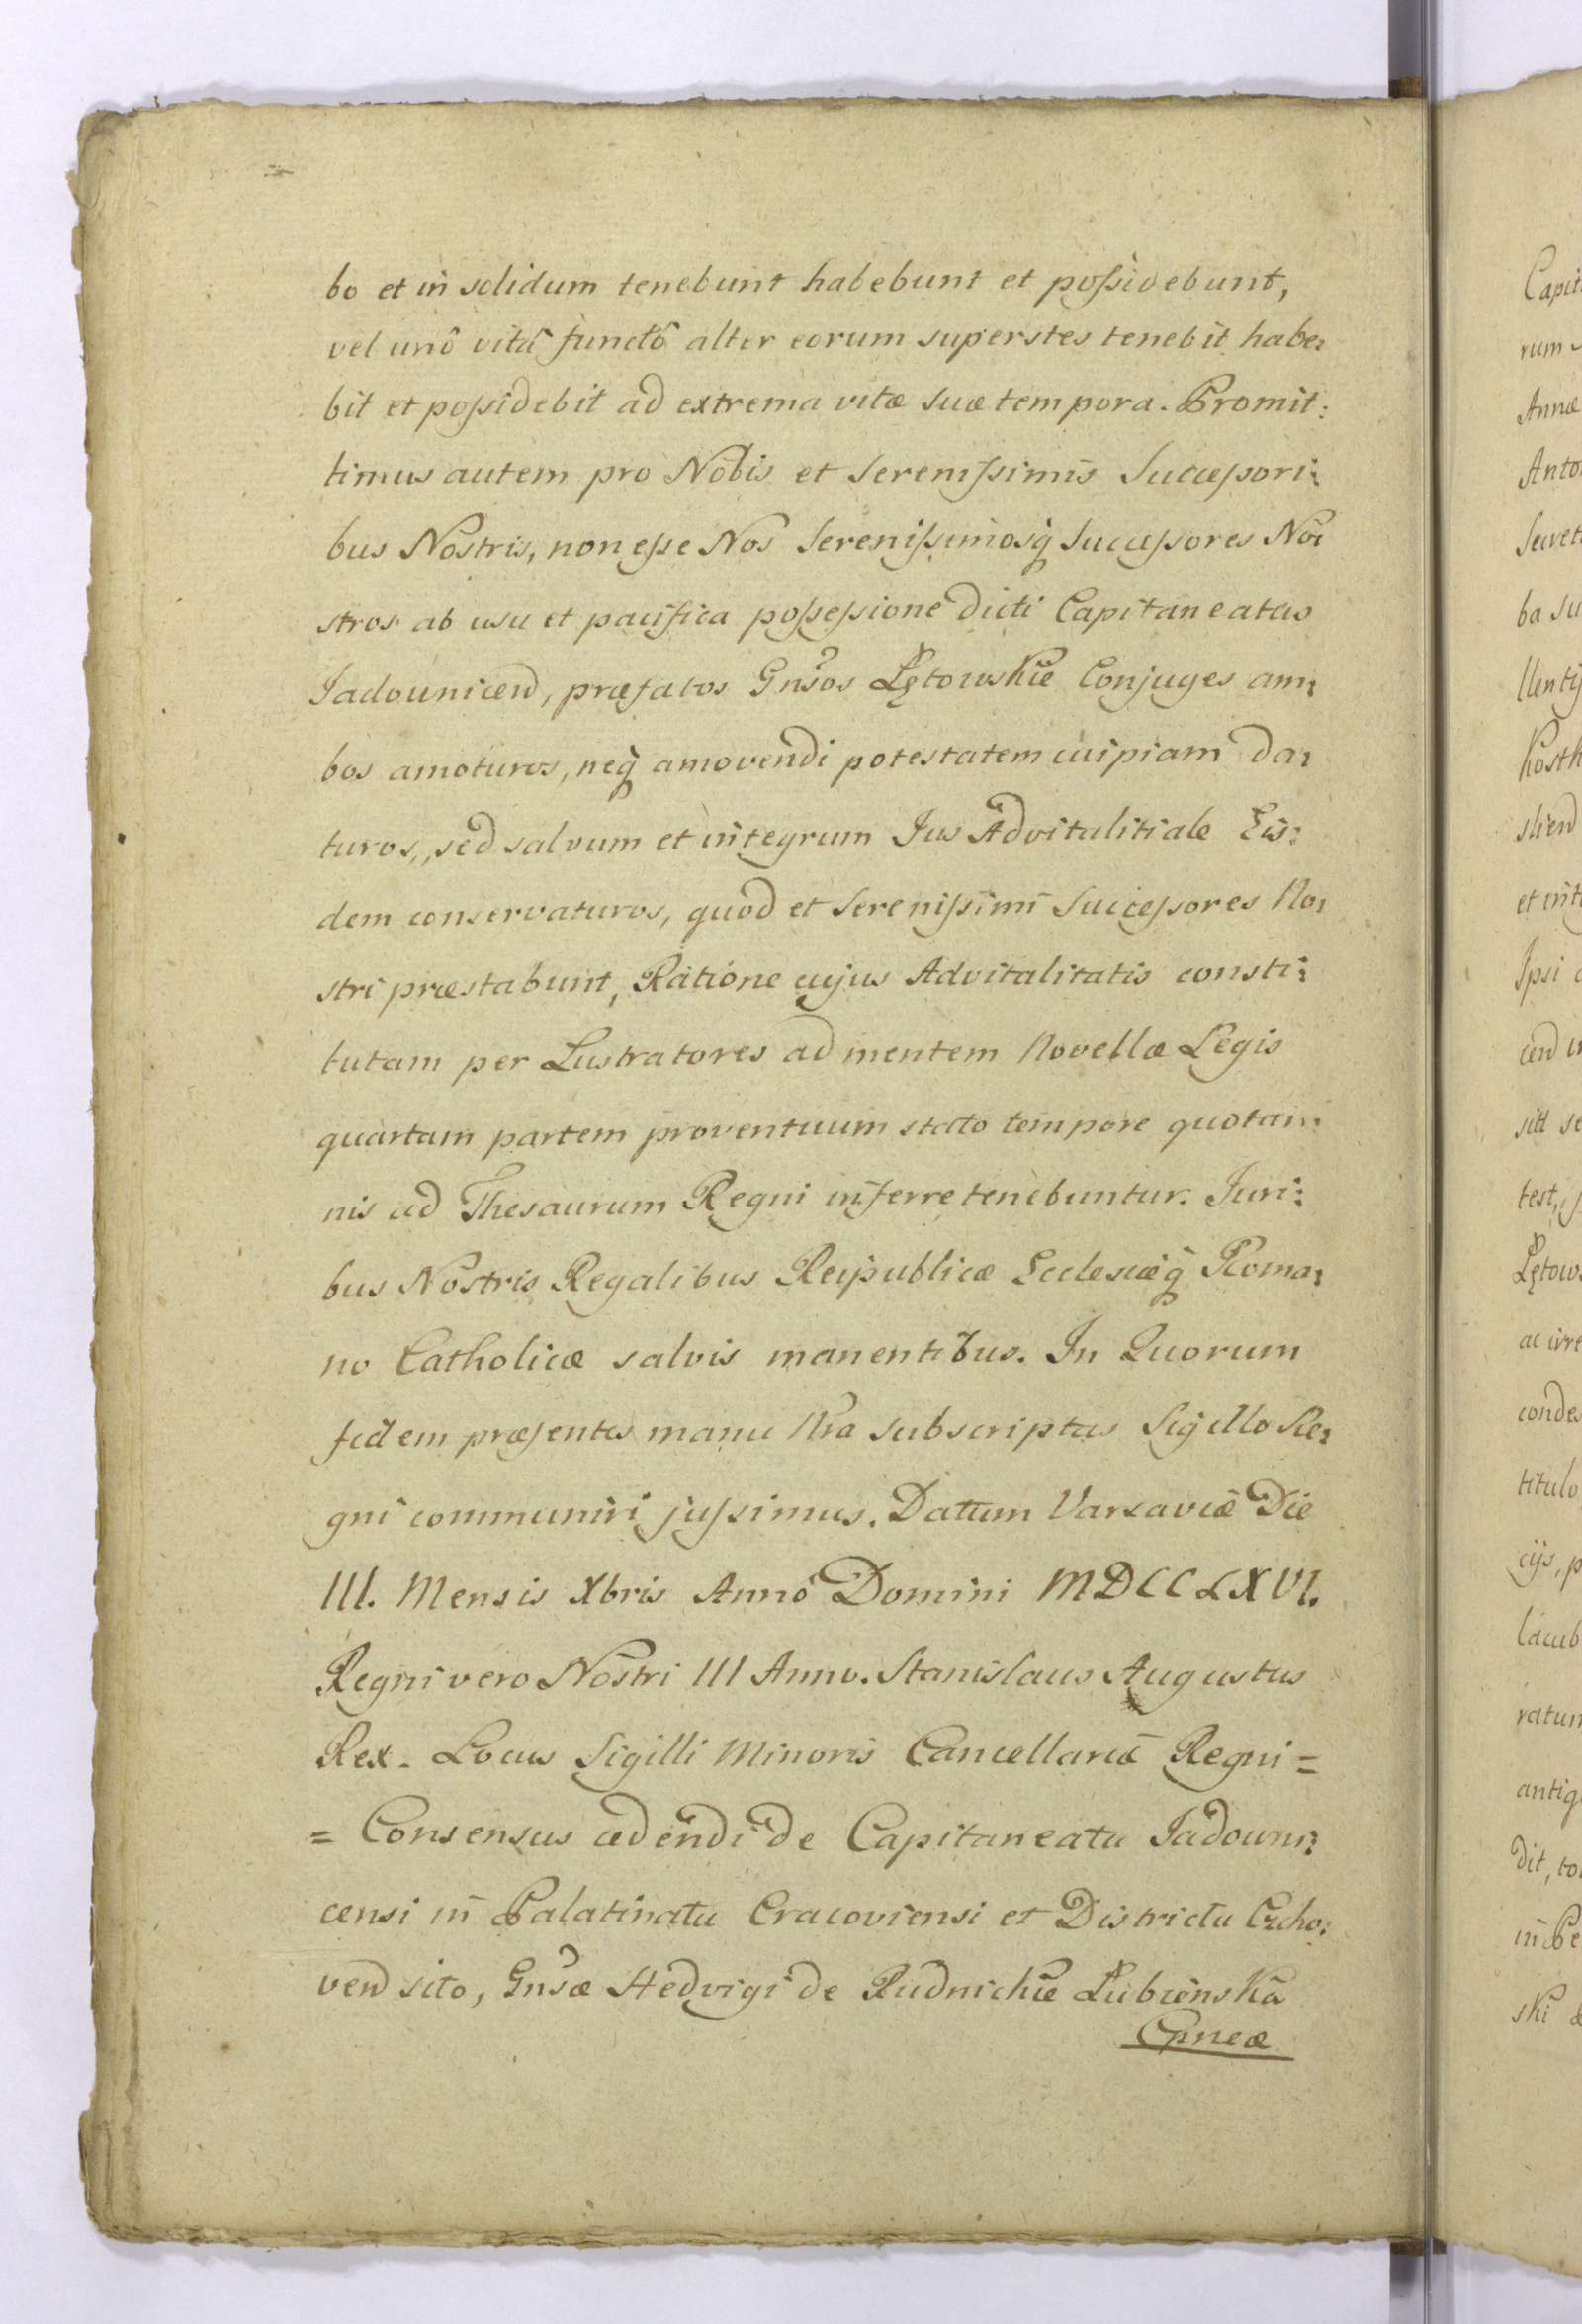 bo et in solidum tenebunt habebunt et poſsidebunt,
vel unô vitâ functô alter eorum superstes tenebit habe:
bit et poſsidebit ad extrema vitæ suæ tempora. Promit:
timus autem pro Nobis et Sereniſsimis Succeſsori:
bus Nostris, non eſse Nos Sereniſsimosq̀ Succeſsores No:
stros ab usu et pacifica poſseſsione dicti Capitaneatus
Jadownicen̄, præfatos Gnsos Lętowskie Conjuges am:
bos amoturos, neq̀ amovendi potestatem cuipiam da:
turos, sed salvum et integrum Jus Advitalitiale Eis:
dem conservaturos, quod et Sereniſsimi Succeſsores No:
stri præstabunt, Ratione cujus Advitalitatis consti:
tutam per Lustratores ad mentem Novellæ Legis
quartam partem proventuum stato tempore quotan:
nis ad Thesaurum Regni inferre tenebuntur. Juri:
bus Nostris Regalibus Reipublicæ Ecclesiæq̀ Roma:
no Catholicæ salvis manentibus. In Quorum
fidem præsentes manu Nra subscriptas Sigillo Re:
gni communiri juſsimus. Datum Varsaviæ Die
III. Mensis Xbris Annô Domini MDCCLXVI.
Regni vero Nostri III Anno. Stanislaus Augustus
Rex. Locus Sigilli Minoris Cancellariæ Regni =
= Consensus cedendi de Capitaneatu Jadowni:
censi in Palatinatu Cracoviensi et Districtu Czcho:
ven̄ sito, Gnsæ Hedvigi de Rudnickie Łubieńska
Cpneæ
Capit
rum
Annæ
Anto
Secret
ba su
llentij
Kostk
slien̄
et int
Ipsi c
cen̄ in
sitt se
test,
Lętow
ac irre
condes
titulo
cijs, p
ratum
antiq
dit, to
in Pe
ski &